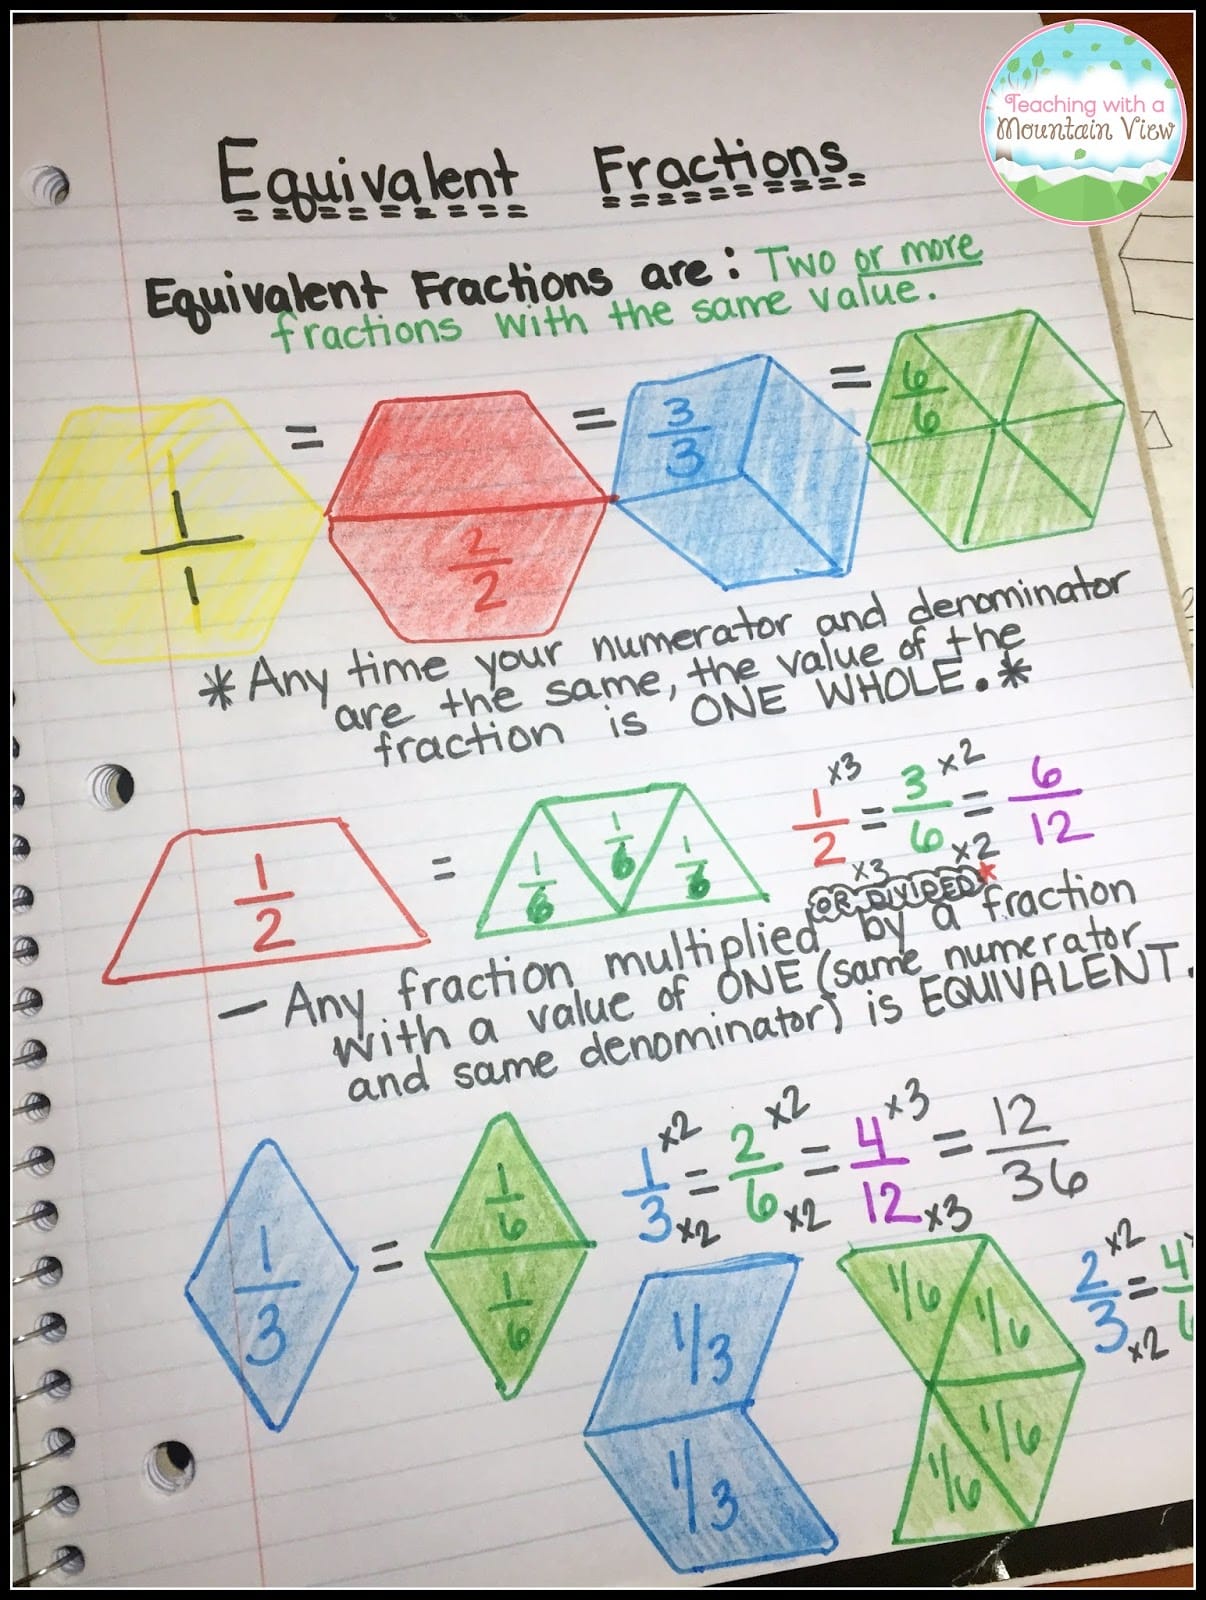 Teaching with a
Mountain View
Equivalent Fractions
Equivalent Fractions are: Two or more
fractions with the same value.
1/1 = 2/2 = 3/3 = 6/6
*Any time your numerator and denominator
are the same, the value of the
fraction is ONE WHOLE.*
1/2 = 1/6 1/6 1/6
1/2 x3 x3 = 3/6 x2 x2 = 6/12
OR DIVIDED*
- Any fraction multiplied by a fraction
with a value of ONE (same numerator
and same denominator) is EQUIVALENT.
1/3 = 1/6 1/6
1/3 x2 x2 = 2/6 x2 x2 = 4/12 x3 x3 = 12/36
1/3 1/3
1/6 1/6 1/6 1/6
2/3 x2 x2 = 4/6